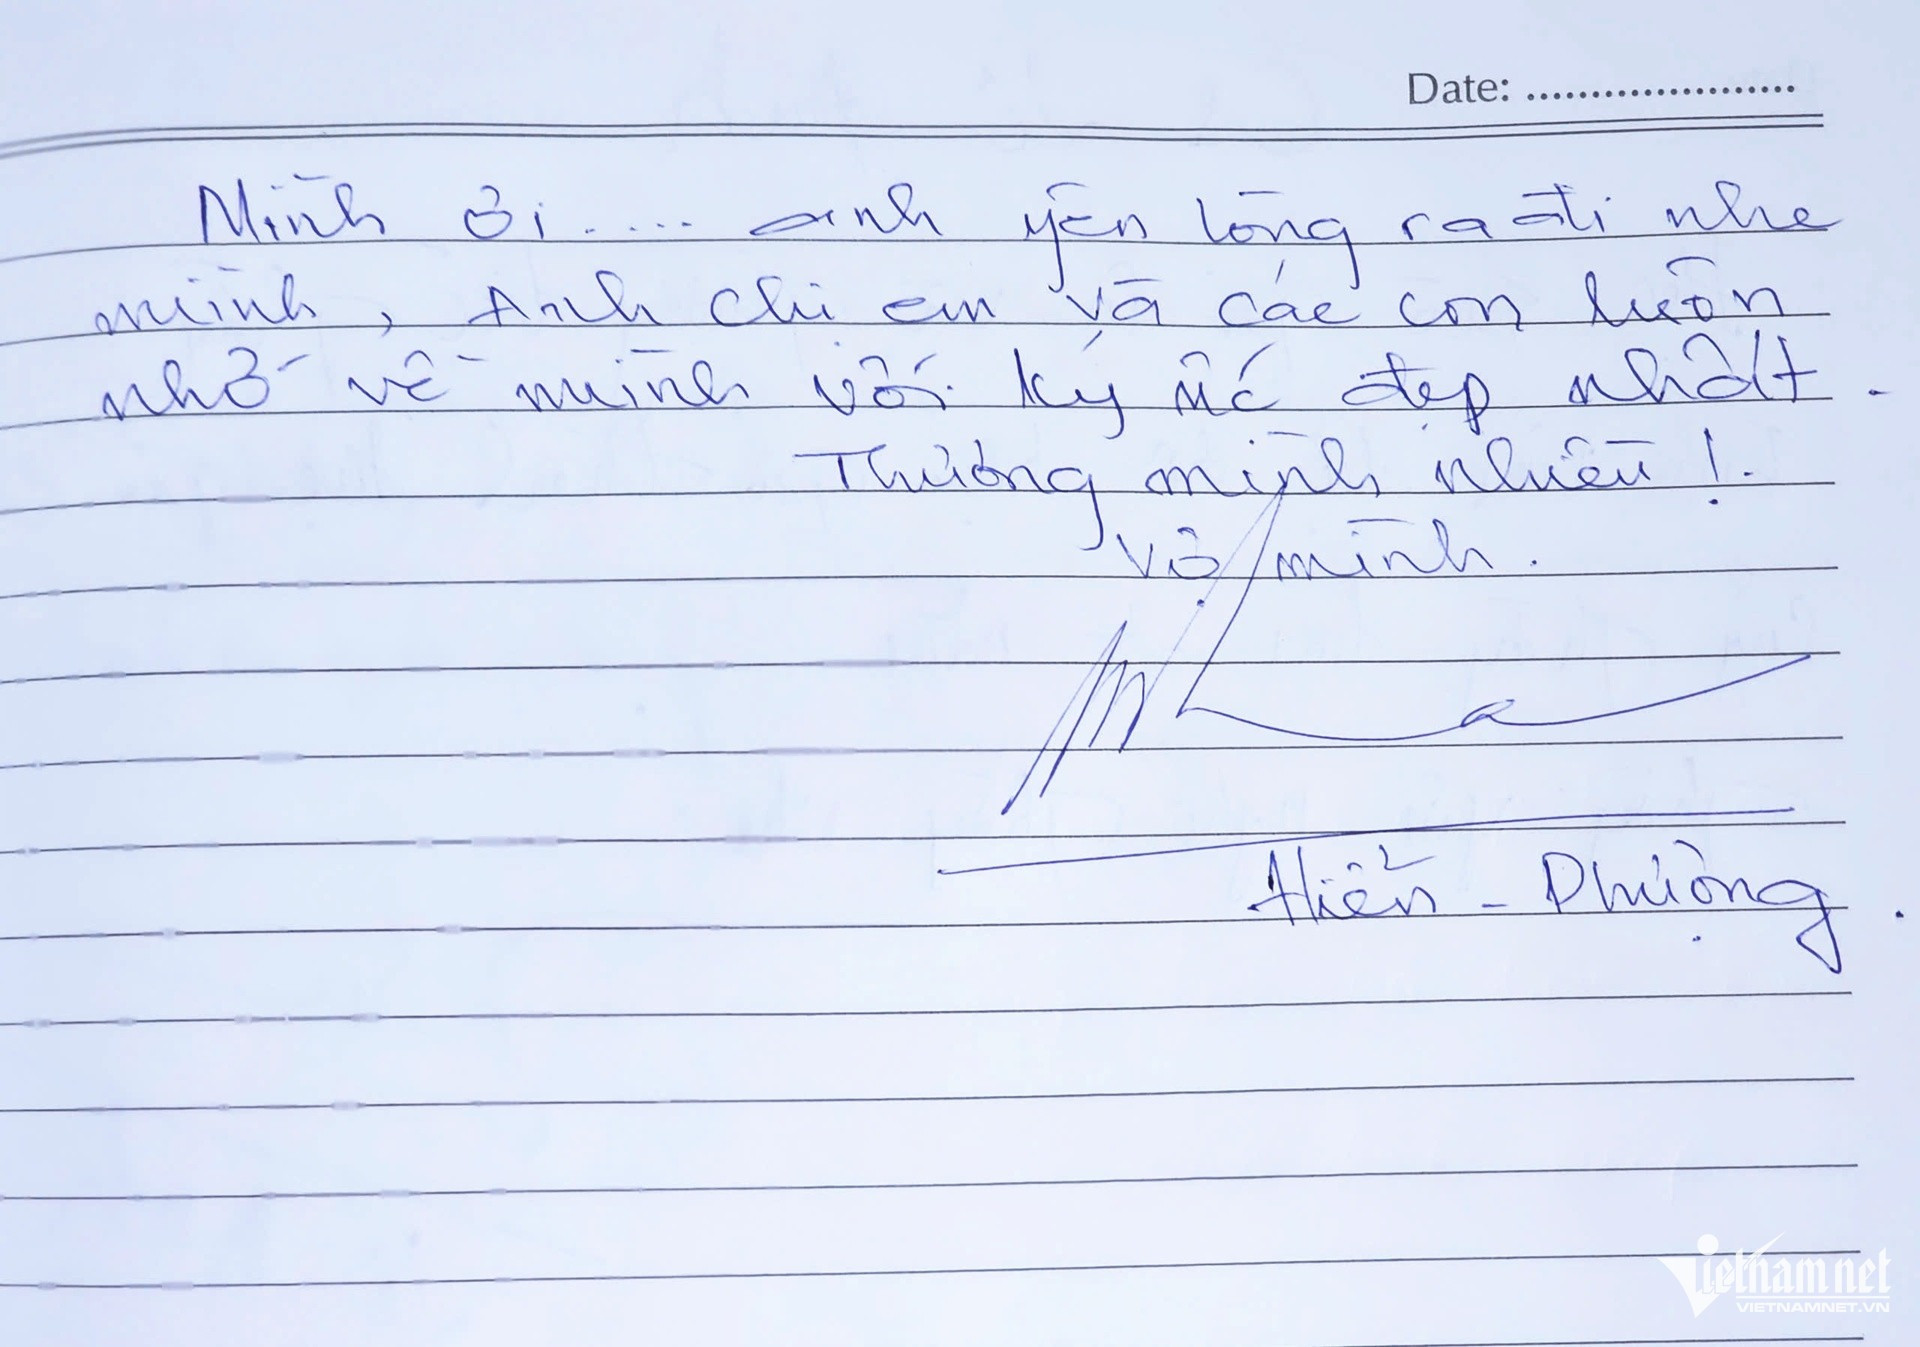 Date: .....................
Mình ơi..... anh yên lòng ra đi nhe
mình, Anh chi em và các con luôn
nhớ về mình với ký ức đẹp nhất.
Thương mình nhiều!.
Vợ mình.
Hiển - Phượng.
Vietnamnet
VIETNAMNET.VN